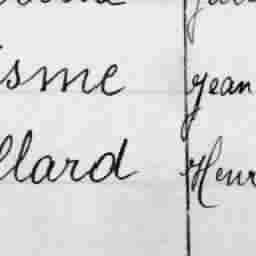 isme Jean
llard Henr